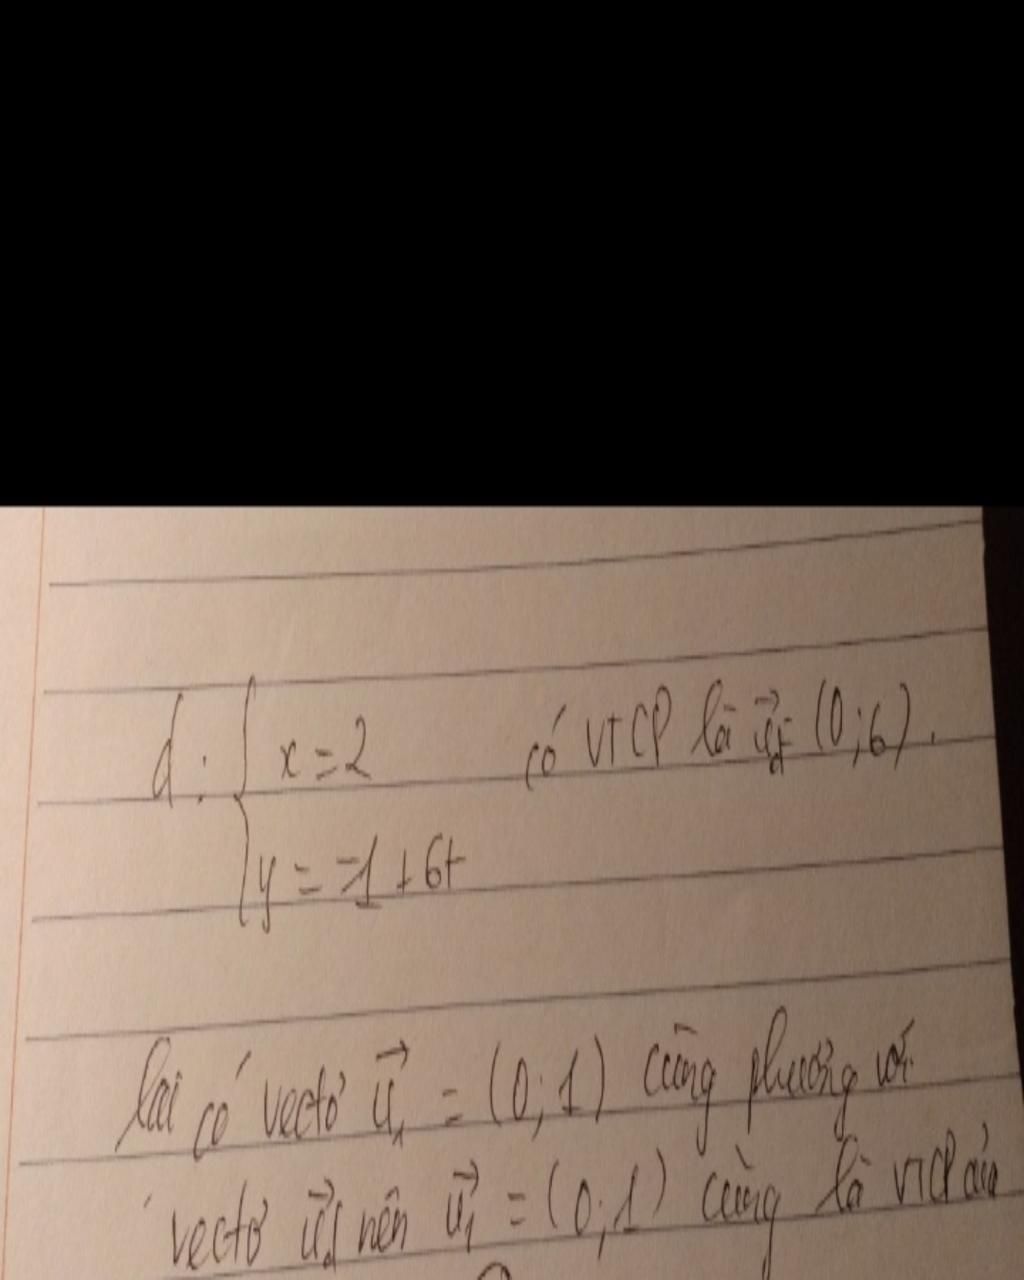 d: { x = 2 có VTCP là u⃗d = (0;6).
y = -1 + 6t
lại có vectơ u⃗₁ = (0;1) cùng phương với
vectơ u⃗d nên u⃗₁ = (0;1) cũng là VTCP của